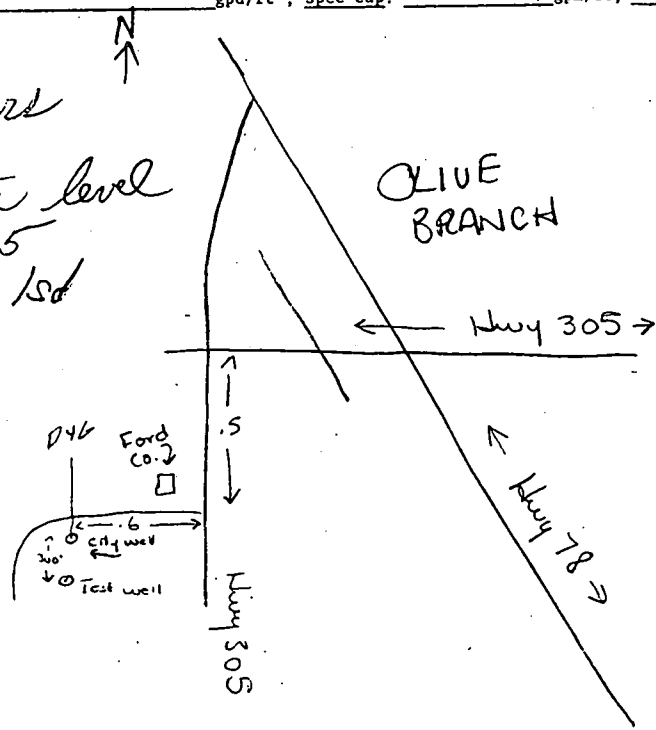 gpd/ft², spec cap:
N
level
5
lsd
OLIVE
BRANCH
Hwy 305
.5
D46
Ford
Co.
.6
City well
300'
Test well
Hwy 78
Hwy 305